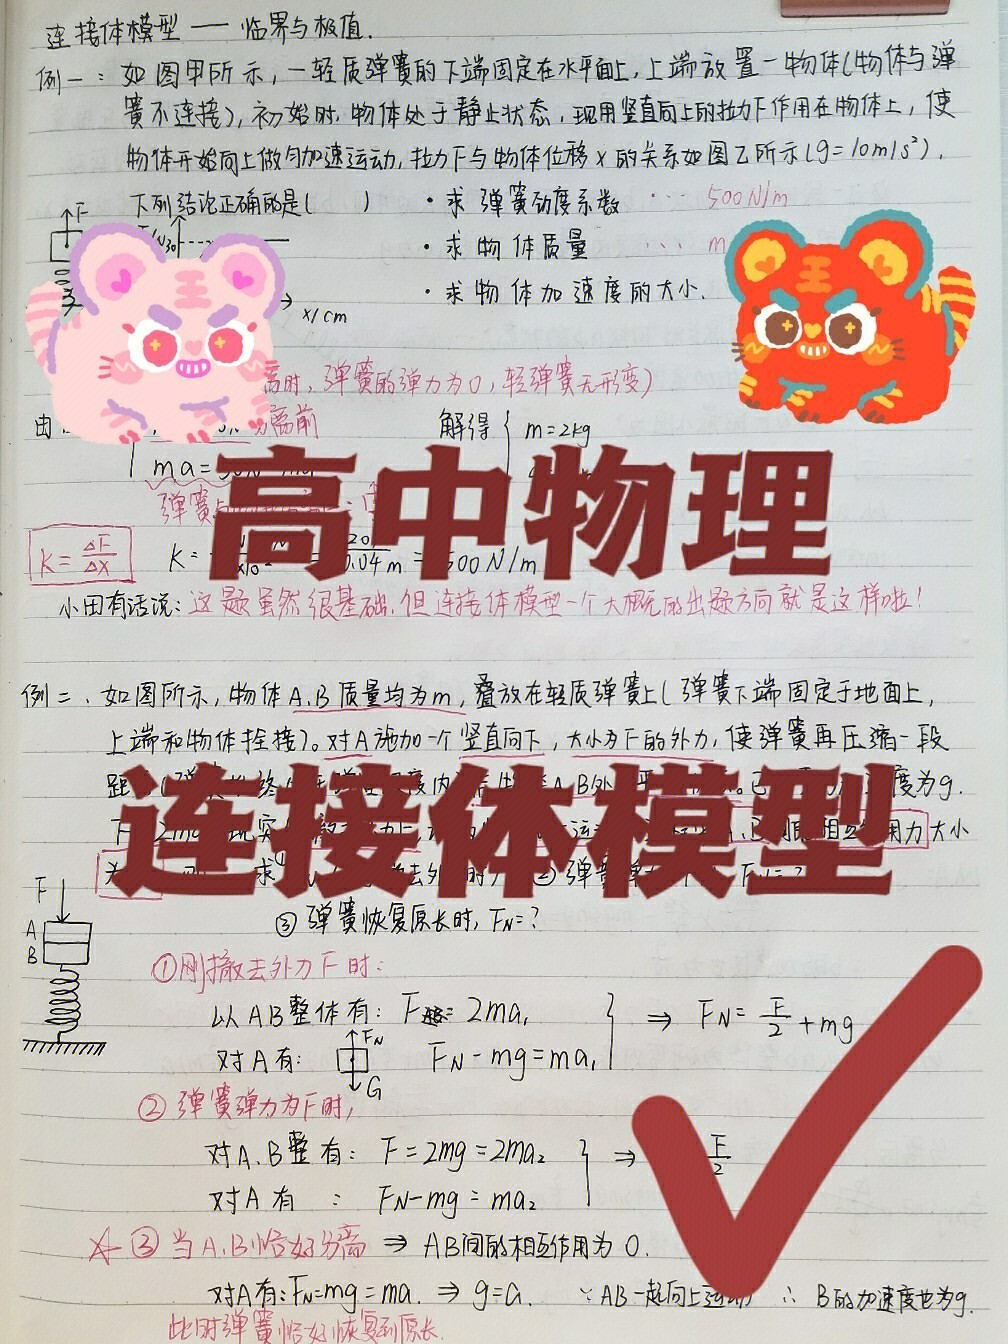 连接体模型 —— 临界与极值.
例一: 如图甲所示, 一轻质弹簧的下端固定在水平面上, 上端放置一物体(物体与弹
簧不连接), 初始时, 物体处于静止状态, 现用竖直向上的拉力F作用在物体上, 使
物体开始向上做匀加速运动, 拉力F与物体位移x的关系如图乙所示(g=10m/s²).
下列结论正确的是( )
· 求弹簧劲度系数 ··· 500N/m
F
· 求物体质量 ··· m
· 求物体加速度的大小.
x/cm
时, 弹簧的弹力为0, 轻弹簧无形变)
由
前
解得 { m=2kg
ma=
弹簧
高中物理
K=ΔF/Δx
K=
0.04m
N/m
小田有话说: 这题虽然很基础, 但连接体模型一个大概的出题方向就是这样啦!
例二、如图所示, 物体A.B质量均为m, 叠放在轻质弹簧上(弹簧下端固定于地面上,
上端和物体拴接)。对A施加一个竖直向下, 大小为F的外力, 使弹簧再压缩一段
距
度为g.
连接体模型
用力大小
为
求
③ 弹簧恢复原长时, FN=?
F
A
B
①刚撤去外力F时:
以AB整体有: F = 2ma₁
对A有: FN-mg=ma₁
} ⇒ FN=F/2+mg
FN
G
② 弹簧弹力为F时,
对A.B整有: F=2mg=2ma₂
对A有: FN-mg=ma₂
} ⇒ F/2
☆ ③ 当A.B恰好分离 ⇒ AB间的相互作用为0.
对A有: FN=mg=ma. ⇒ g=a. ∵AB一起向上运动 ∴ B的加速度也为g.
此时弹簧恰好恢复到原长.